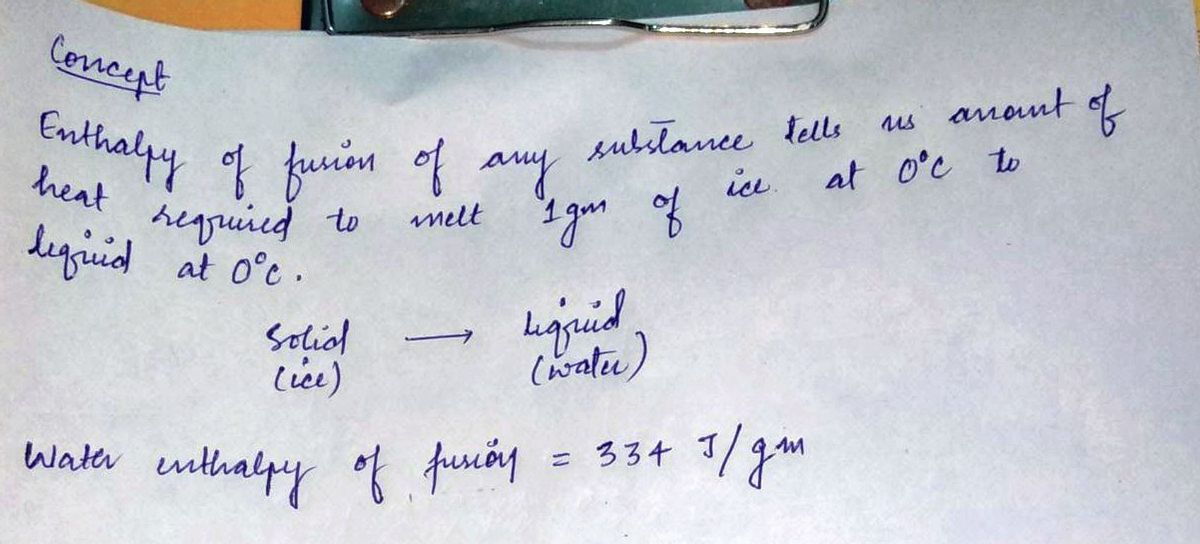 Concept
Enthalpy of fusion of any substance tells us amount of
heat required to melt 1gm of ice at 0°C to
liquid at 0°C.
Solid → liquid
(ice) (water)
Water enthalpy of fusion = 334 J/gm